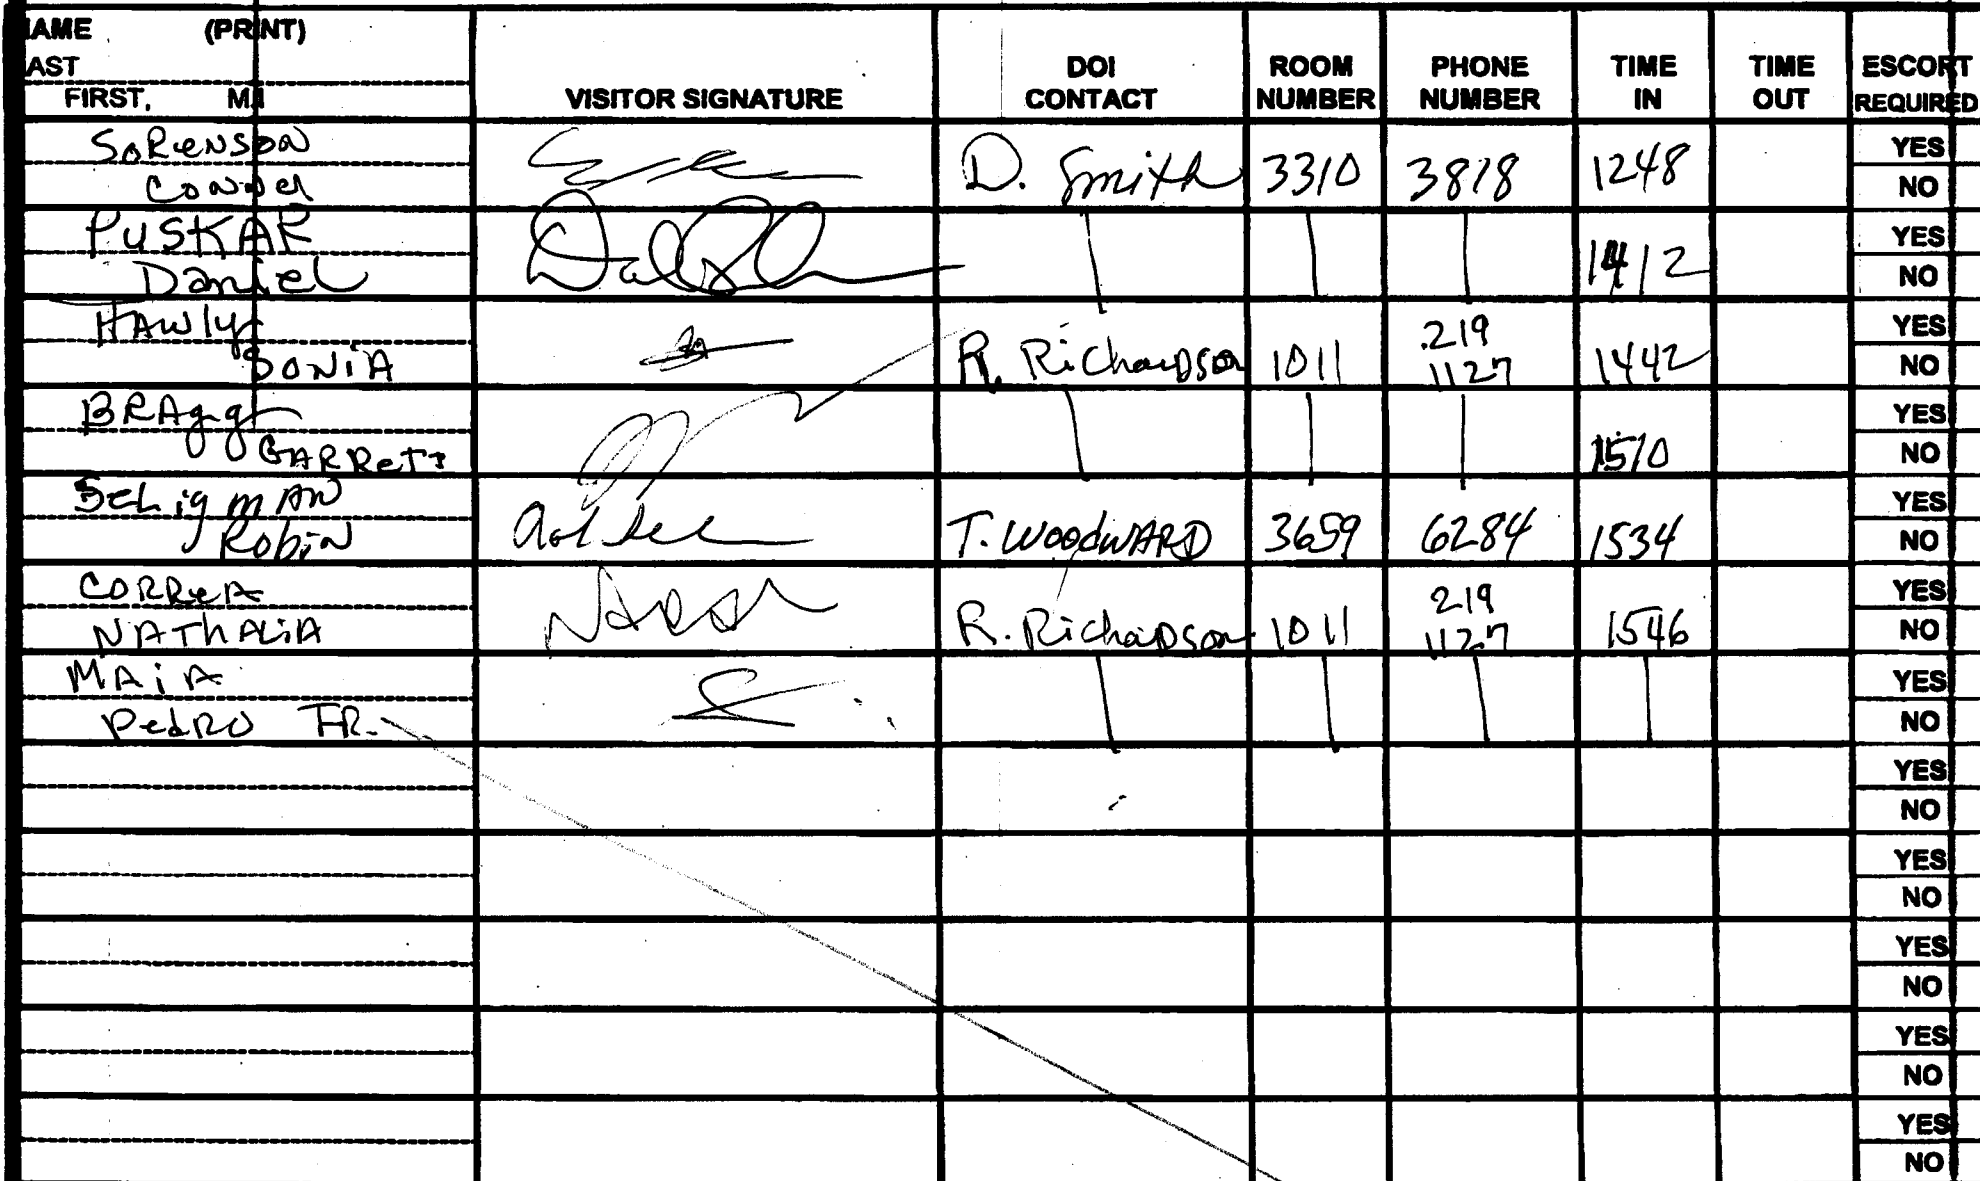 NAME (PRINT)
LAST
FIRST, MI
VISITOR SIGNATURE
DOI CONTACT
ROOM NUMBER
PHONE NUMBER
TIME IN
TIME OUT
ESCORT REQUIRED
SORENSON
CONNOR D. Smith 3310 3818 1248 YES NO
PUSKAR
Daniel 1412 YES NO
HAWLY
SONIA R. Richardson 1011 219 1127 1442 YES NO
BRAgg
GARRETT 1510 YES NO
SELigmAN
Robin T. WOODWARD 3659 6284 1534 YES NO
CORREA
NATHALIA R. Richardson 1011 219 1127 1546 YES NO
MAiA
PedRO FR. YES NO
YES NO
YES NO
YES NO
YES NO
YES NO